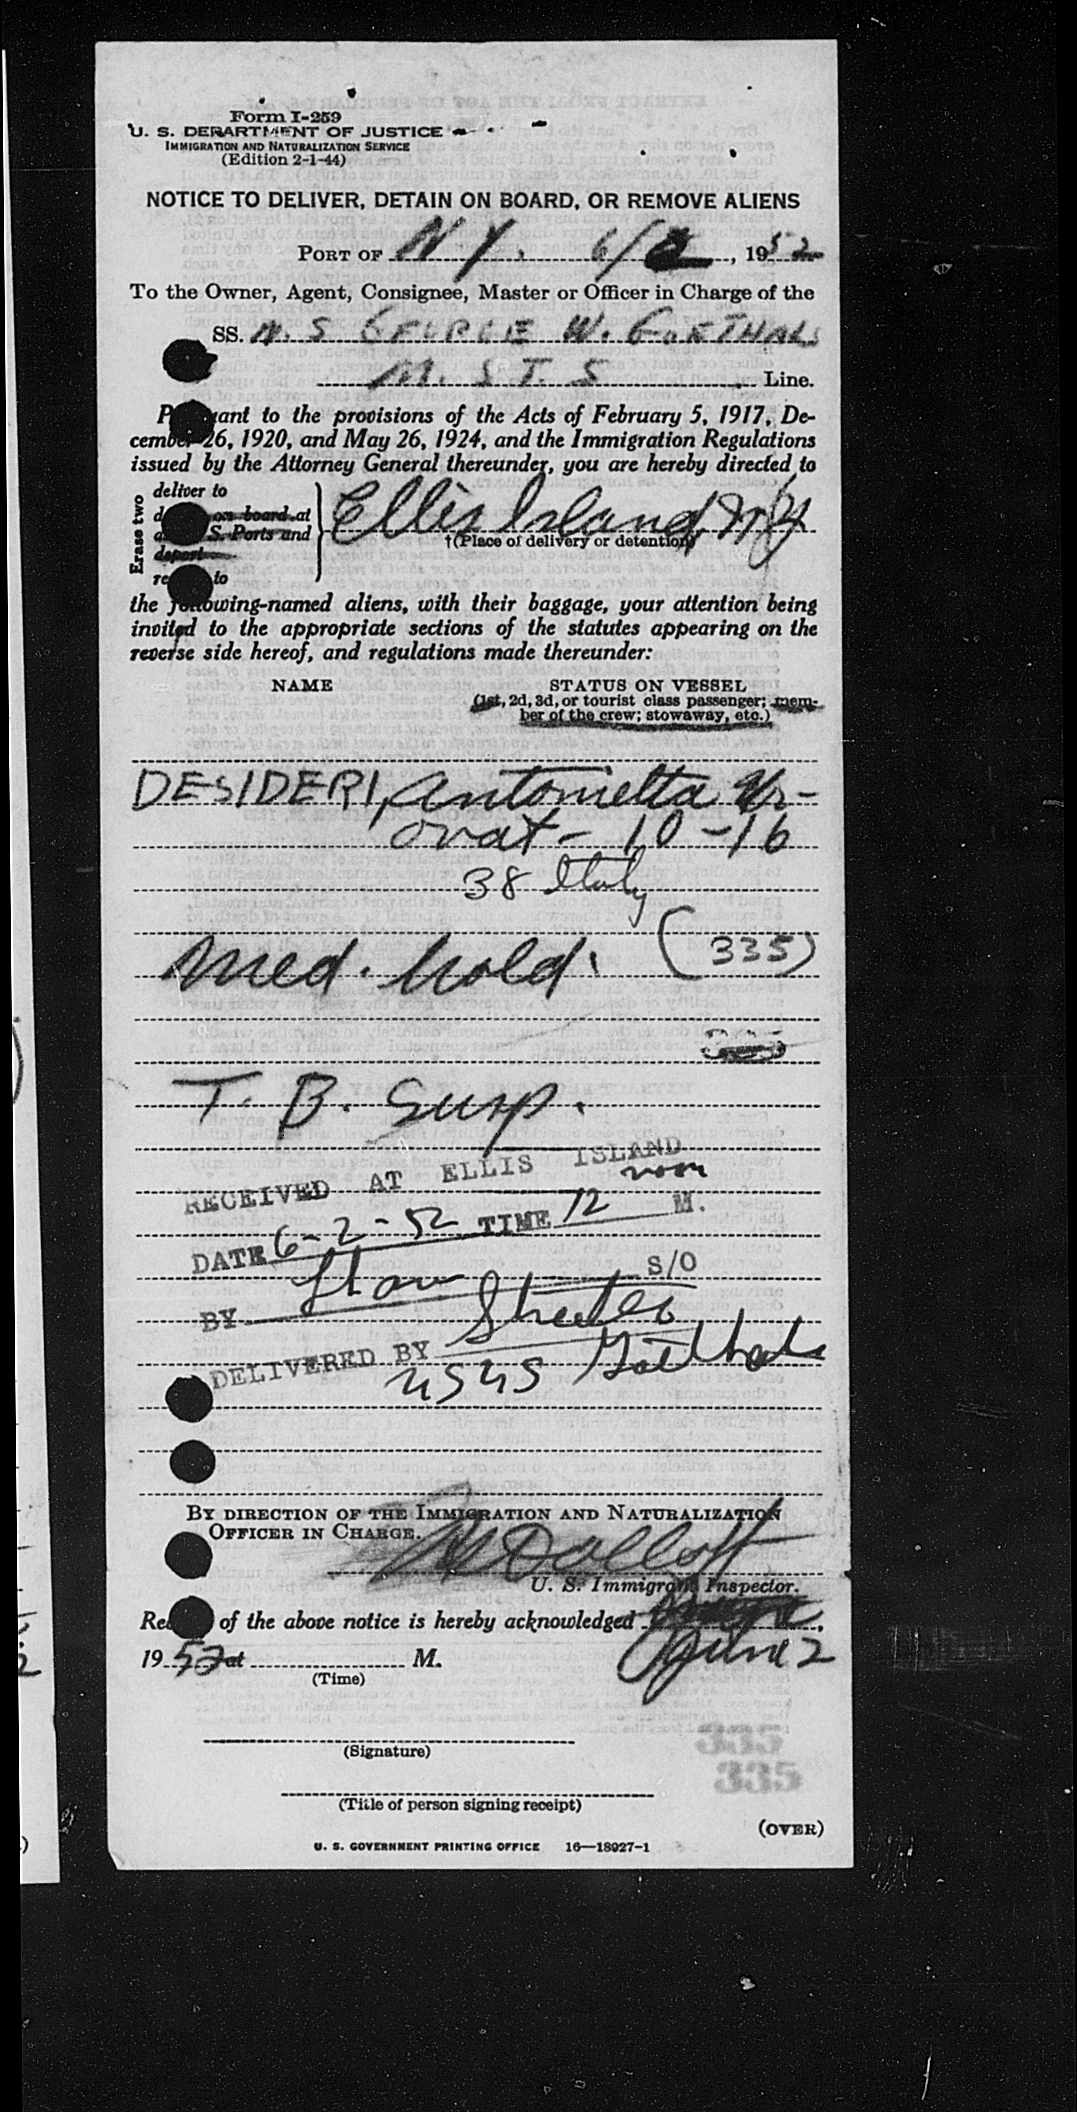 Form I-259
U. S. DEPARTMENT OF JUSTICE
IMMIGRATION AND NATURALIZATION SERVICE
(Edition 2-1-44)
NOTICE TO DELIVER, DETAIN ON BOARD, OR REMOVE ALIENS
PORT OF N Y. 6/2, 1952
To the Owner, Agent, Consignee, Master or Officer in Charge of the
SS. N. S GEORGE W. GOETHALS
M. S T. S Line.
Pursuant to the provisions of the Acts of February 5, 1917, De-
cember 26, 1920, and May 26, 1924, and the Immigration Regulations
issued by the Attorney General thereunder, you are hereby directed to
Erase two
deliver to
on board at
S. Ports and
deport
to
Ellis Island, NY
†(Place of delivery or detention)
the following-named aliens, with their baggage, your attention being
invited to the appropriate sections of the statutes appearing on the
reverse side hereof, and regulations made thereunder:
NAME STATUS ON VESSEL
(1st, 2d, 3d, or tourist class passenger; mem-
ber of the crew; stowaway, etc.)
DESIDERI, Antonietta Kr-
ovat - 10-16
38 Italy
Med. hold. (335)
335
T. B. Susp.
RECEIVED AT ELLIS ISLAND
noon
DATE 6-2-52 TIME 12 M.
BY S/O
DELIVERED BY
USNS Goethals
BY DIRECTION OF THE IMMIGRATION AND NATURALIZATION
OFFICER IN CHARGE.
U. S. Immigrant Inspector.
Receipt of the above notice is hereby acknowledged
June 2
1952 at M.
(Time)
(Signature)
335
335
(Title of person signing receipt)
(OVER)
U. S. GOVERNMENT PRINTING OFFICE 16—18927-1